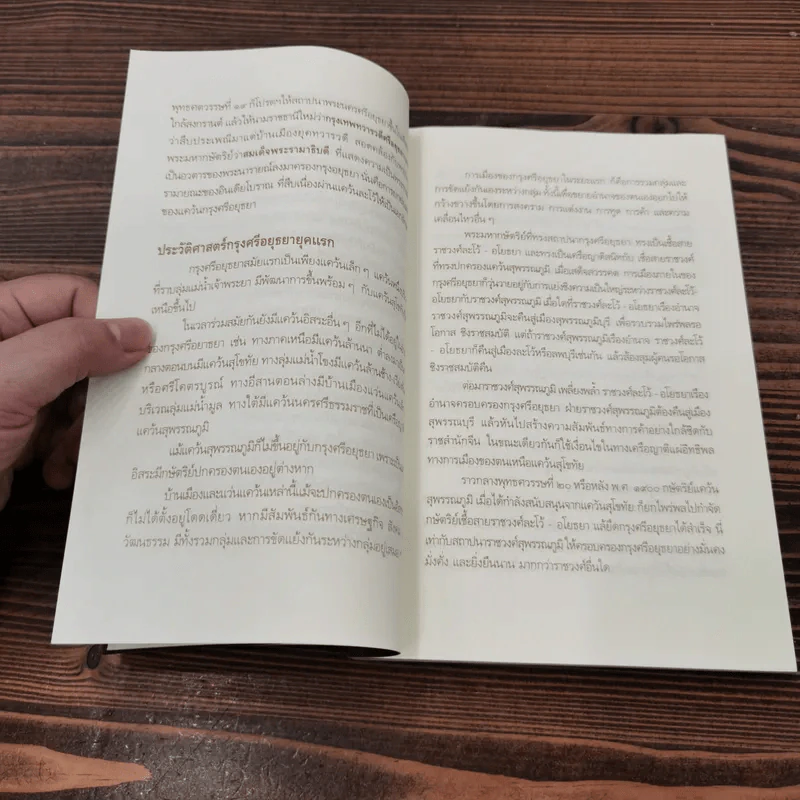 พุทธศตวรรษที่ ๑๙ ก็โปรดฯให้สถาปนาพระนครศรีอยุธยาขึ้น
ใกล้สงกรานต์ แล้วให้นามราชธานีใหม่ว่ากรุงเทพทวารวดีศรีอยุธยา
ว่าสืบประเพณีมาแต่บ้านเมืองยุคทวารวดี สอดคล้องกับ
พระมหากษัตริย์ว่าสมเด็จพระรามาธิบดี ที่แสดงความเป็น
เป็นอวตารของพระนารายณ์ลงมาครองกรุงอยุธยา นั่นคือการ
รามายณะของอินเดียโบราณ ที่สืบเนื่องผ่านแคว้นละโว้ให้เป็น
ของแคว้นกรุงศรีอยุธยา
ประวัติศาสตร์กรุงศรีอยุธยายุคแรก
กรุงศรีอยุธยาสมัยแรกเป็นเพียงแคว้นเล็กๆ แคว้นหนึ่ง
ที่ราบลุ่มแม่น้ำเจ้าพระยา มีพัฒนาการขึ้นพร้อมๆ กับแคว้นสุโขทัย
เหนือขึ้นไป
ในเวลาร่วมสมัยกันยังมีแคว้นอิสระอื่นๆ อีกที่ไม่ได้อยู่ใน
ของกรุงศรีอยุธยา เช่น ทางภาคเหนือมีแคว้นล้านนา ต่ำลงมา
กลางตอนบนมีแคว้นสุโขทัย ทางลุ่มแม่น้ำโขงมีแคว้นล้านช้าง
หรือศรีโคตรบูรณ์ ทางอีสานตอนล่างมีบ้านเมืองแว่นแคว้น
บริเวณลุ่มแม่น้ำมูล ทางใต้มีแคว้นนครศรีธรรมราชที่เป็นเครือญาติ
แคว้นสุพรรณภูมิ
แม้แคว้นสุพรรณภูมิก็ไม่ขึ้นอยู่กับกรุงศรีอยุธยา เพราะเป็น
อิสระมีกษัตริย์ปกครองตนเองอยู่ต่างหาก
บ้านเมืองและแว่นแคว้นเหล่านี้แม้จะปกครองตนเองเป็นอิสระ
ก็ไม่ได้ตั้งอยู่โดดเดี่ยว หากมีสัมพันธ์กันทางเศรษฐกิจ สังคม
วัฒนธรรม มีทั้งรวมกลุ่มและการขัดแย้งกันระหว่างกลุ่มอยู่เสมอ
การเมืองของกรุงศรีอยุธยาในระยะแรก ก็คือการรวมกลุ่มและ
การขัดแย้งกันของระหว่างกลุ่ม ทั้งนี้เพื่อขยายอำนาจของตนแผ่ออกไปให้
กว้างขวางขึ้นโดยการสงคราม การแต่งงาน การทูต การค้า และความ
เคลื่อนไหวอื่น ๆ
พระมหากษัตริย์ที่ทรงสถาปนากรุงศรีอยุธยา ทรงเป็นเชื้อสาย
ราชวงศ์ละโว้ - อโยธยา และทรงเป็นเครือญาติสนิทกับ เชื้อสายราชวงศ์
ที่ทรงปกครองแคว้นสุพรรณภูมิ เมื่อเสด็จสวรรคต การเมืองภายในของ
กรุงศรีอยุธยาก็วุ่นวายอยู่กับการแย่งชิงความเป็นใหญ่ระหว่างราชวงศ์ละโว้-
อโยธยากับราชวงศ์สุพรรณภูมิ เมื่อใดที่ราชวงศ์ละโว้ - อโยธยาเรืองอำนาจ
ราชวงศ์สุพรรณภูมิจะคืนสู่เมืองสุพรรณภูมิบุรี เพื่อรวบรวมไพร่พลรอ
โอกาส ชิงราชสมบัติ แต่ถ้าราชวงศ์สุพรรณภูมิเรืองอำนาจ ราชวงศ์ละโว้
- อโยธยาก็คืนสู่เมืองละโว้หรือลพบุรีเช่นกัน แล้วส้องสุมผู้คนรอโอกาส
ชิงราชสมบัติคืน
ต่อมาราชวงศ์สุพรรณภูมิ เพลี่ยงพล้ำ ราชวงศ์ละโว้ - อโยธยาเรือง
อำนาจครอบครองกรุงศรีอยุธยา ฝ่ายราชวงศ์สุพรรณภูมิต้องคืนสู่เมือง
สุพรรณบุรี แล้วหันไปสร้างความสัมพันธ์ทางการค้าอย่างใกล้ชิดกับ
ราชสำนักจีน ในขณะเดียวกันก็ใช้เงื่อนไขในทางเครือญาติแผ่อิทธิพล
ทางการเมืองของตนเหนือแคว้นสุโขทัย
ราวกลางพุทธศตวรรษที่ ๒๐ หรือหลัง พ.ศ. ๑๙๐๐ กษัตริย์แคว้น
สุพรรณภูมิ เมื่อได้กำลังสนับสนุนจากแคว้นสุโขทัย ก็ยกไพร่พลไปกำจัด
กษัตริย์เชื้อสายราชวงศ์ละโว้ - อโยธยา แล้วยึดกรุงศรีอยุธยาได้สำเร็จ นี่
เท่ากับสถาปนาราชวงศ์สุพรรณภูมิ ให้ครอบครองกรุงศรีอยุธยาอย่างมั่นคง
มั่งคั่ง และยั่งยืนนาน มากกว่าราชวงศ์อื่นใด